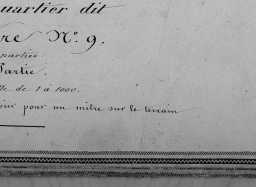 uartier dit
re N.º 9.
Partie.
lle de 1 à 1000.
pour un mètre sur le terrain